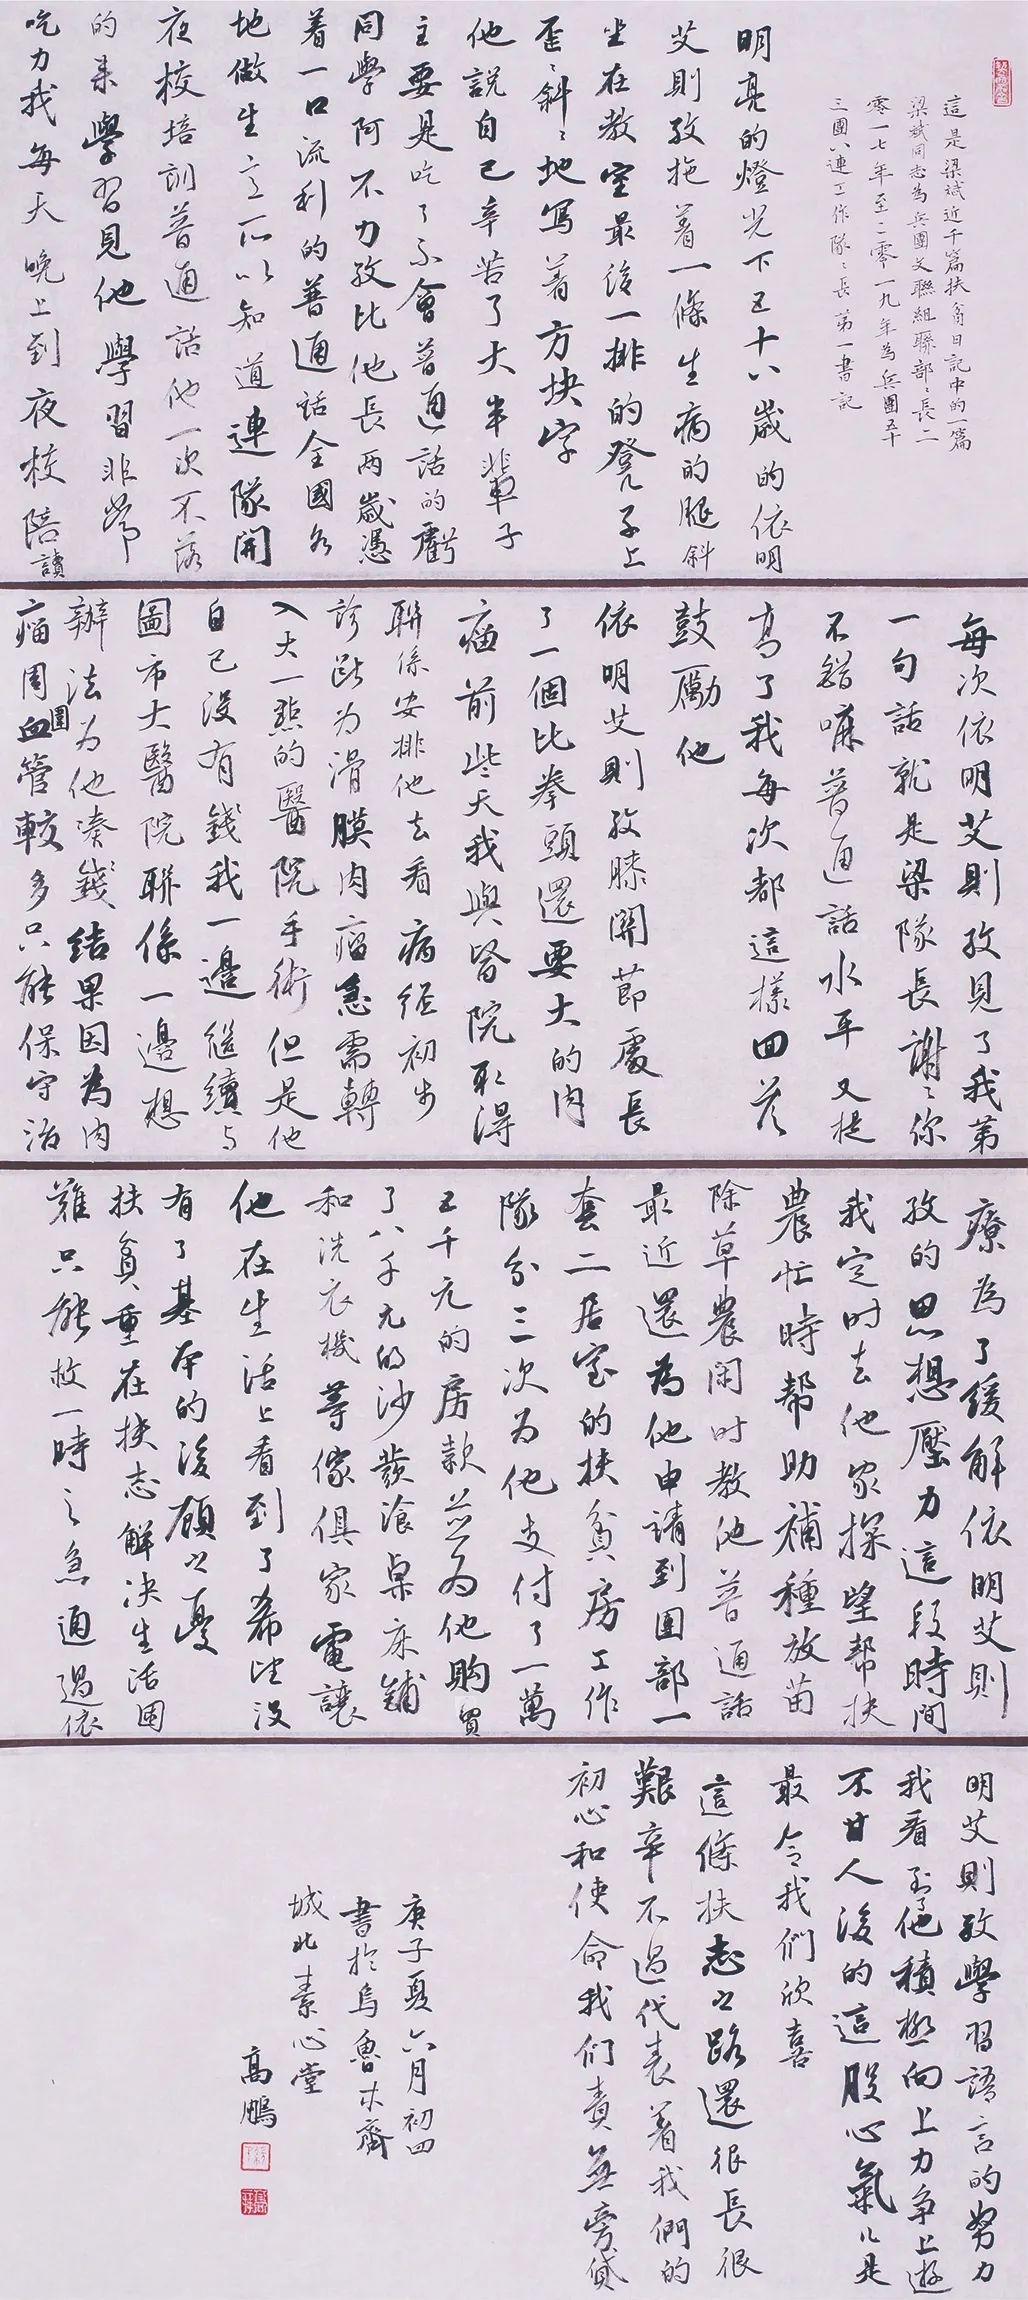 這是梁斌近千篇扶貧日記中的一篇
梁斌同志為兵團文聯組聯部〻長二
零一七年至二零一九年為兵團五十
三團八連工作隊〻長第一書記
明亮的燈光下五十八歲的依明
艾則孜拖着一條生病的腿斜
坐在教室最後一排的凳子上
歪〻斜〻地寫着方块字
他説自己辛苦了大半輩子
主要是吃了不會普通話的虧
同學阿不力孜比他長兩歲憑
着一口流利的普通話全國各
地做生意所以知道連隊開
夜校培訓普通話他一次不落
的来學習見他學習非常
吃力我每天晚上到夜校陪讀
每次依明艾則孜見了我第
一句話就是梁隊長謝〻你
不錯嘛普通話水平又提
高了我每次都這樣回答
鼓勵他
依明艾則孜膝關節處長
了一個比拳頭還要大的肉
瘤前些天我與醫院取得
聯係安排他去看病經初步
診斷为滑膜肉瘤急需轉
入大一點的醫院手術但是他
自己沒有錢我一邊繼續与
圖市大醫院聯係一邊想
辦法为他凑錢結果因為肉
瘤周圍血管較多只能保守治
療為了緩解依明艾則
孜的思想壓力這段時間
我定时去他家探望幫扶
農忙時帮助補種放苗
除草農闲时教他普通話
最近還為他申請到團部一
套二居室的扶貧房工作
隊分三次为他支付了一萬
五千元的房款並为他購買
了八千元的沙發飡桌床鋪
和洗衣機等傢俱家電讓
他在生活上看到了希望没
有了基本的後顧之憂
扶貧重在扶志解决生活困
難只能救一時之急通過依
明艾則孜學習語言的努力
我看到了他積極向上力争上遊
不甘人後的這股心氣儿是
最令我們欣喜
這條扶志之路還很長很
艱辛不過代表着我們的
初心和使命我们責無旁貸
庚子夏六月初四
書於烏魯木齊
城北素心堂
高鵬